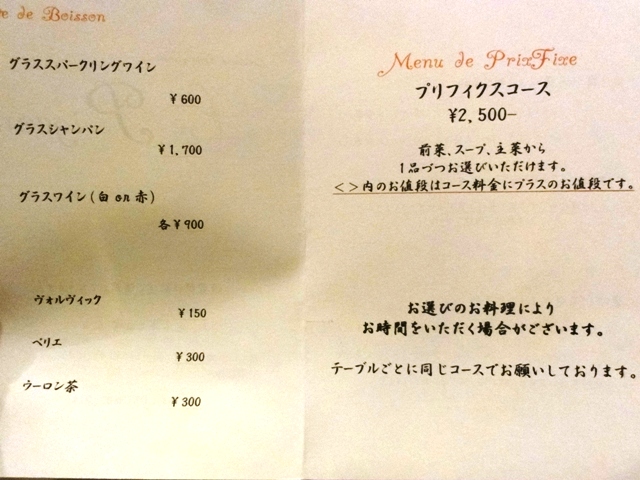 de Boisson
グラススパークリングワイン
¥600
グラスシャンパン
¥1,700
グラスワイン(白 or 赤)
各¥900
ヴォルヴィック
¥150
ペリエ
¥300
ウーロン茶
¥300
Menu de PrixFixe
プリフィクスコース
¥2,500-
前菜、スープ、主菜から
1品づつお選びいただけます。
<>内のお値段はコース料金にプラスのお値段です。
お選びのお料理により
お時間をいただく場合がございます。
テーブルごとに同じコースでお願いしております。